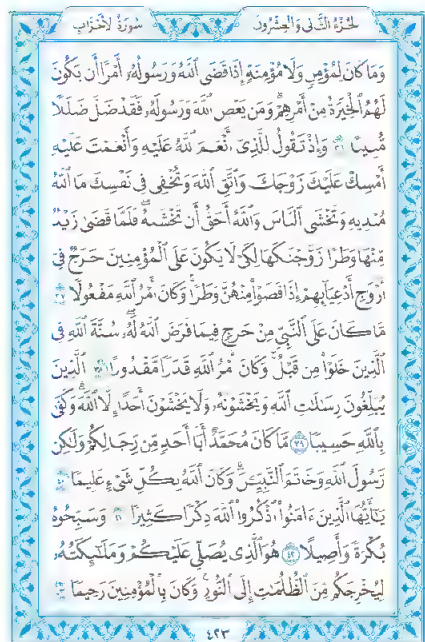 سُورَةُ الأَحْزَابِ
الجُزْءُ الثَّانِي وَالعِشْرُونَ
وَمَا كَانَ لِمُؤْمِنٍ وَلَا مُؤْمِنَةٍ إِذَا قَضَى ٱللَّهُ وَرَسُولُهُۥٓ أَمْرًا أَن يَكُونَ
لَهُمُ ٱلْخِيَرَةُ مِنْ أَمْرِهِمْ ۗ وَمَن يَعْصِ ٱللَّهَ وَرَسُولَهُۥ فَقَدْ ضَلَّ ضَلَٰلًا
مُّبِينًا ٣٦ وَإِذْ تَقُولُ لِلَّذِىٓ أَنْعَمَ ٱللَّهُ عَلَيْهِ وَأَنْعَمْتَ عَلَيْهِ
أَمْسِكْ عَلَيْكَ زَوْجَكَ وَٱتَّقِ ٱللَّهَ وَتُخْفِى فِى نَفْسِكَ مَا ٱللَّهُ
مُبْدِيهِ وَتَخْشَى ٱلنَّاسَ وَٱللَّهُ أَحَقُّ أَن تَخْشَىٰهُ ۖ فَلَمَّا قَضَىٰ زَيْدٌ
مِّنْهَا وَطَرًا زَوَّجْنَٰكَهَا لِكَىْ لَا يَكُونَ عَلَى ٱلْمُؤْمِنِينَ حَرَجٌ فِىٓ
أَزْوَٰجِ أَدْعِيَآئِهِمْ إِذَا قَضَوْا۟ مِنْهُنَّ وَطَرًا ۚ وَكَانَ أَمْرُ ٱللَّهِ مَفْعُولًا ٣٧
مَّا كَانَ عَلَى ٱلنَّبِىِّ مِنْ حَرَجٍ فِيمَا فَرَضَ ٱللَّهُ لَهُۥ ۖ سُنَّةَ ٱللَّهِ فِى
ٱلَّذِينَ خَلَوْا۟ مِن قَبْلُ ۚ وَكَانَ أَمْرُ ٱللَّهِ قَدَرًا مَّقْدُورًا ٣٨ ٱلَّذِينَ
يُبَلِّغُونَ رِسَٰلَٰتِ ٱللَّهِ وَيَخْشَوْنَهُۥ وَلَا يَخْشَوْنَ أَحَدًا إِلَّا ٱللَّهَ ۗ وَكَفَىٰ
بِٱللَّهِ حَسِيبًا ٣٩ مَّا كَانَ مُحَمَّدٌ أَبَآ أَحَدٍ مِّن رِّجَالِكُمْ وَلَٰكِن
رَّسُولَ ٱللَّهِ وَخَاتَمَ ٱلنَّبِيِّـۧنَ ۗ وَكَانَ ٱللَّهُ بِكُلِّ شَىْءٍ عَلِيمًا ٤٠
يَٰٓأَيُّهَا ٱلَّذِينَ ءَامَنُوا۟ ٱذْكُرُوا۟ ٱللَّهَ ذِكْرًا كَثِيرًا ٤١ وَسَبِّحُوهُ
بُكْرَةً وَأَصِيلًا ٤٢ هُوَ ٱلَّذِى يُصَلِّى عَلَيْكُمْ وَمَلَٰٓئِكَتُهُۥ
لِيُخْرِجَكُم مِّنَ ٱلظُّلُمَٰتِ إِلَى ٱلنُّورِ ۚ وَكَانَ بِٱلْمُؤْمِنِينَ رَحِيمًا ٤٣
٤٢٣